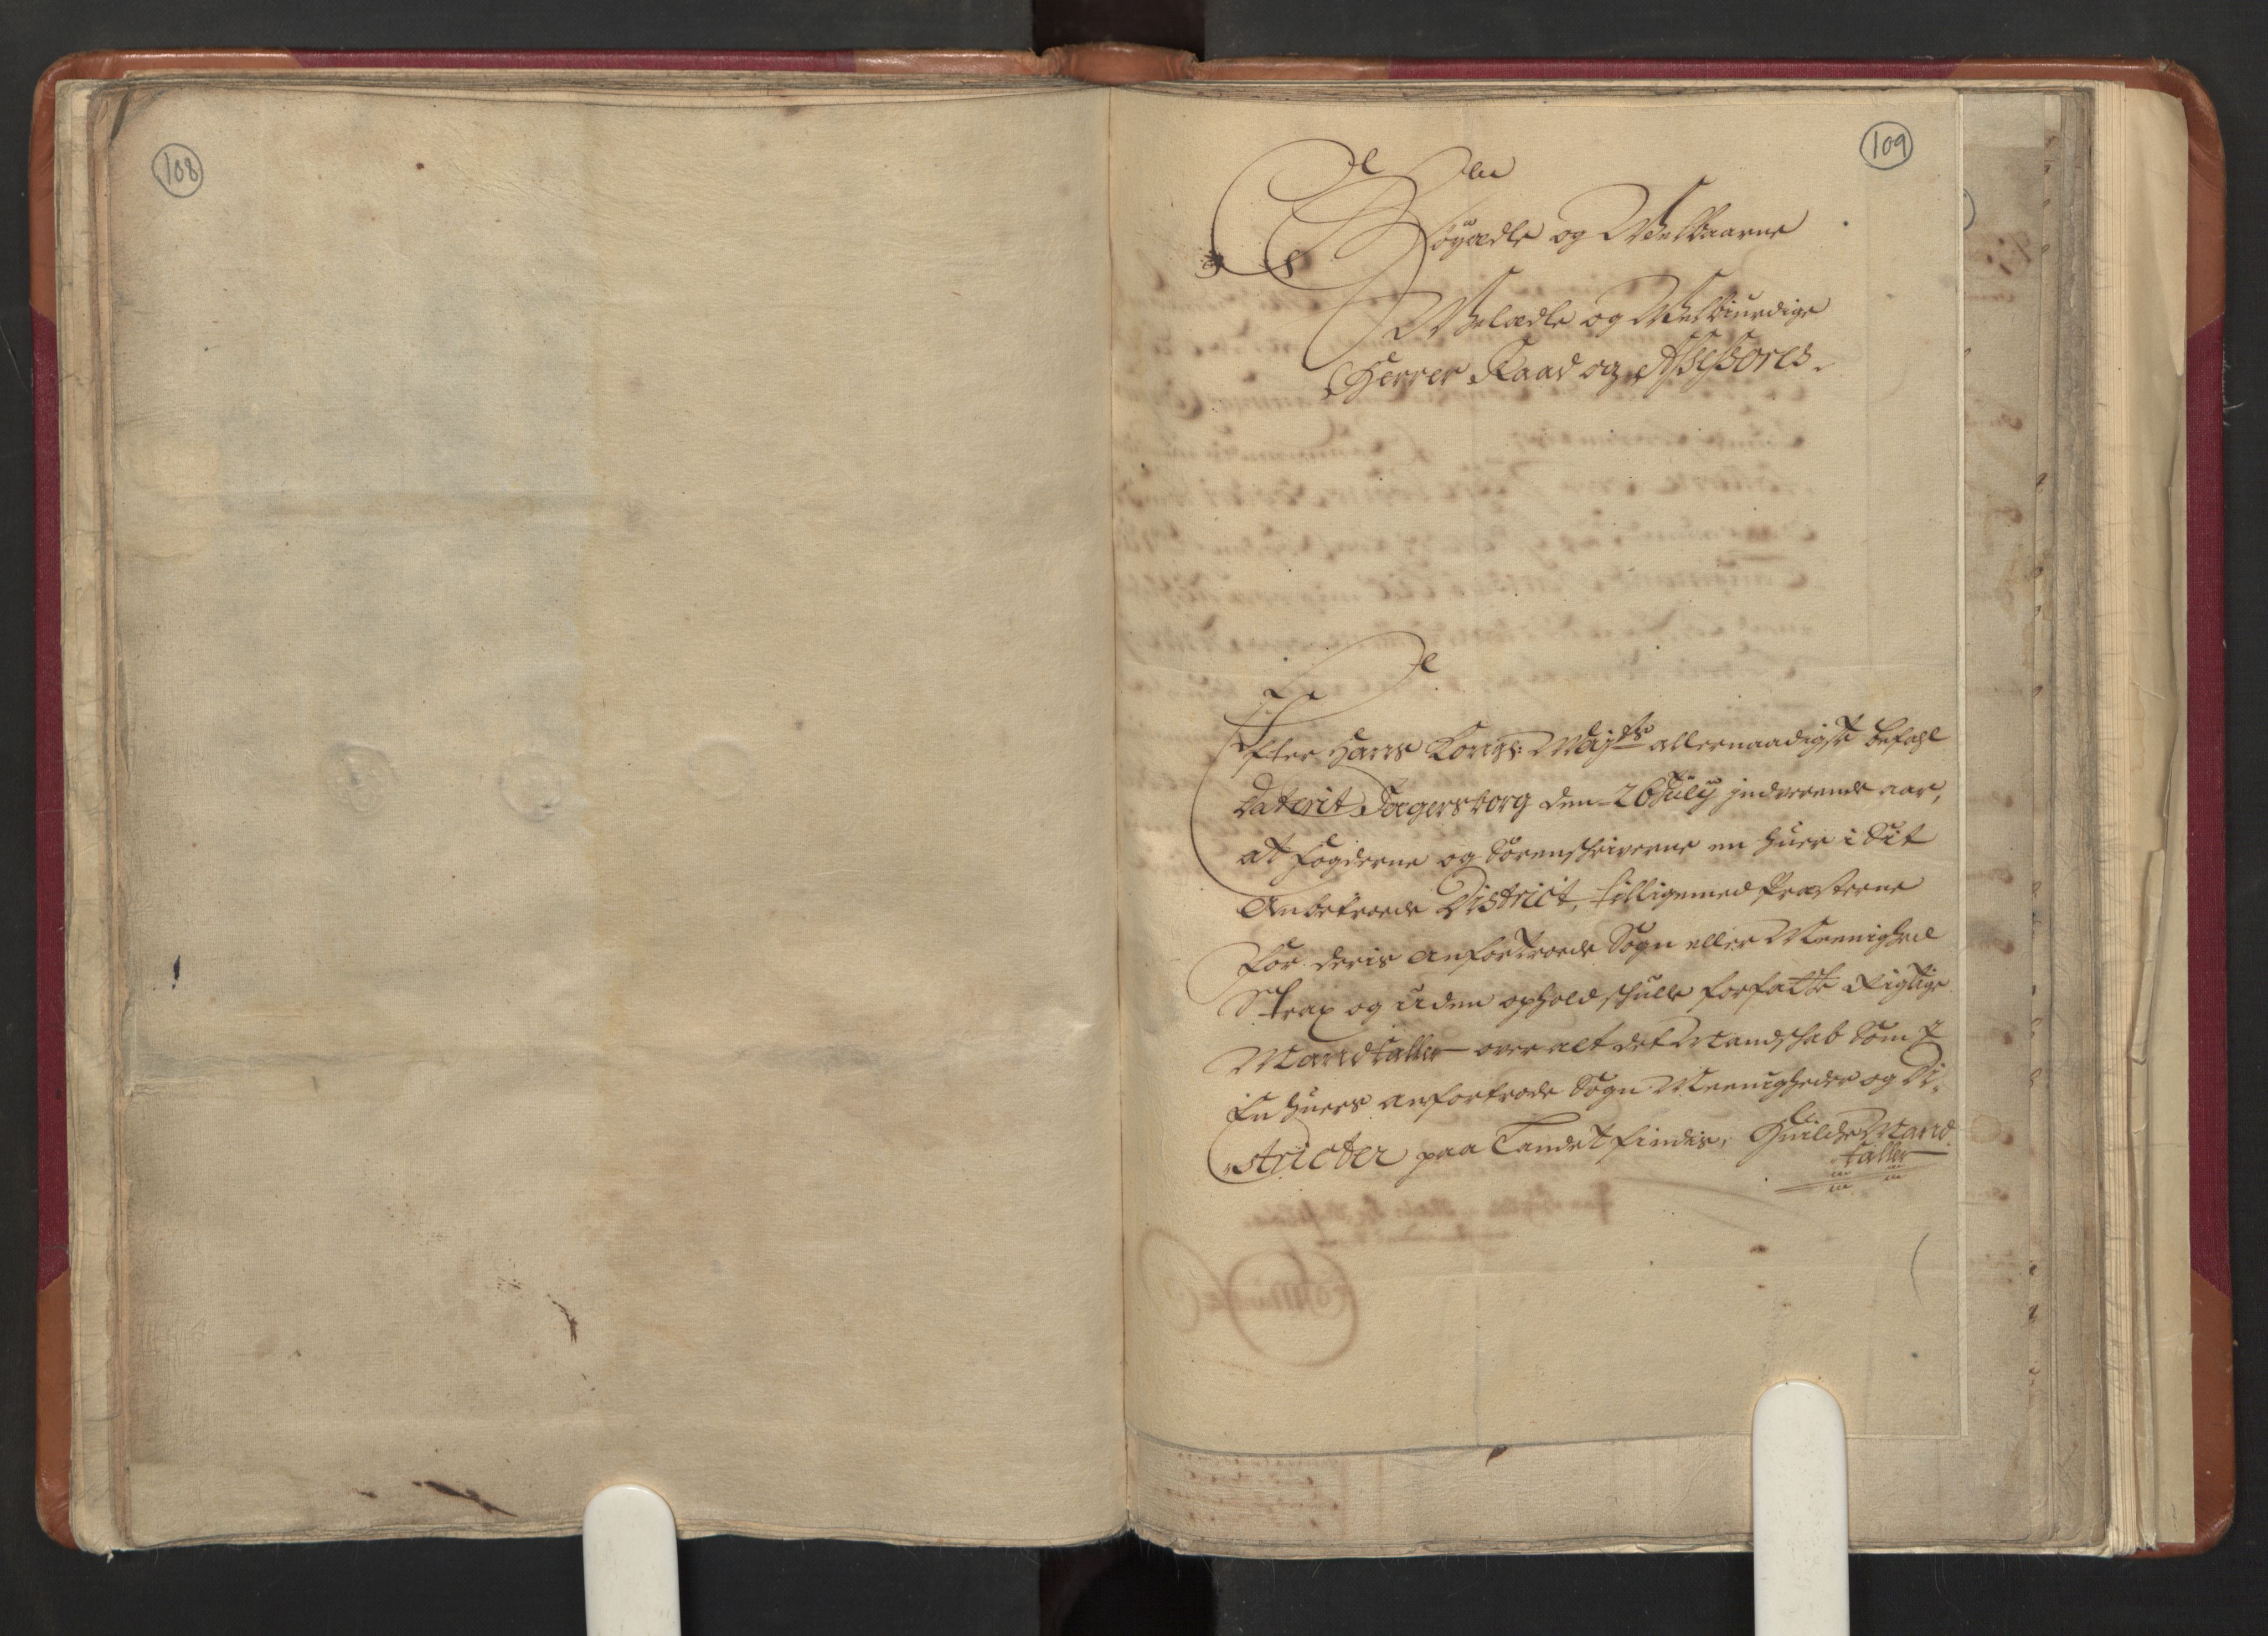 108
109
Høyædle og Welbaarne
Welædle og Welbiurdige
Herrer Raad og Assessores.
Efter Hans Kongs: Maj:ts allernaadigste befahl
Daterit Jagersborg den 26 July indværende aar,
at fogderne og Sørenschriverne en huer i Sit
Anbetroede District, tilligemed Præsterne
for deris Anfortroede Sogn eller Meenighed
Strax og uden ophold schulle forfatte Rigtige
Mandtaller over alt det Mandschab Som I
En huers anfortrode Sogn Meenigheder og Di-
stricter paa Landet findis, Huilche Mand
taller